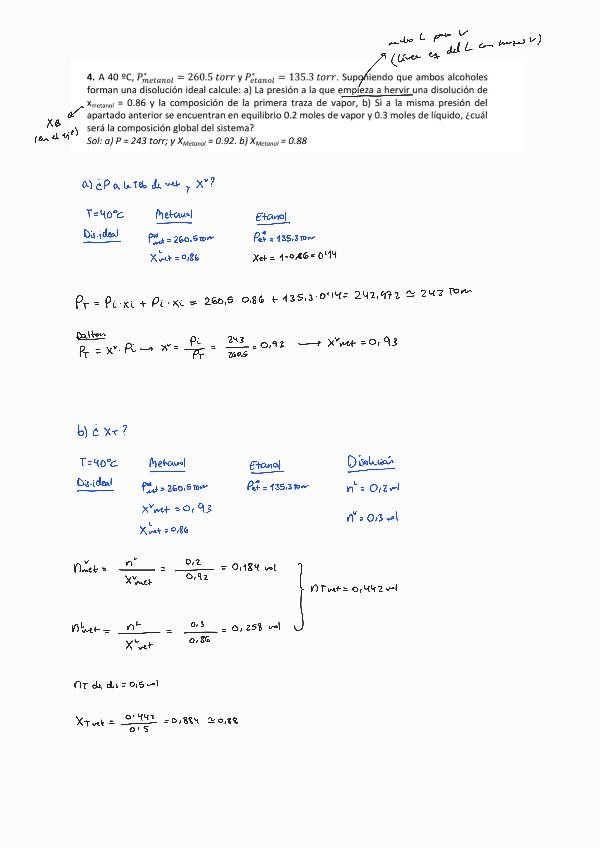 medio L poco V
(línea eq del L con menos V)
4. A 40 ºC, P*metanol = 260.5 torr y P*etanol = 135.3 torr. Suponiendo que ambos alcoholes
forman una disolución ideal calcule: a) La presión a la que empieza a hervir una disolución de
xmetanol = 0.86 y la composición de la primera traza de vapor, b) Si a la misma presión del
apartado anterior se encuentran en equilibrio 0.2 moles de vapor y 0.3 moles de líquido, ¿cuál
será la composición global del sistema?
Sol: a) P = 243 torr; y XMetanol = 0.92. b) XMetanol = 0.88
XB
(en el eje)
a) ¿P a la Teb de met y Xᵛ?
T=40ºC Metanol Etanol
Dis.ideal P*met = 260.5 Torr P*et = 135.3 Torr
Xᴸmet = 0,86 Xet = 1-0,86 = 0'14
PT = Pi·xi + Pi·xi = 260,5·0,86 + 135,3·0'14 = 242,972 ≃ 243 Torr
Dalton
PT = Xᵛ·Pi → Xᵛ = Pi/PT = 243/260.5 = 0,93 → Xᵛmet = 0,93
b) ¿XT?
T=40ºC Metanol Etanol Disolución
Dis.ideal P*met = 260,5 Torr P*et = 135.3 Torr nᴸ = 0,2 mol
Xᵛmet = 0,93 nᵛ = 0,3 mol
Xᴸmet = 0,86
nᵛmet = nᵛ/Xᵛmet = 0,2/0,92 = 0,184 mol
nTmet = 0,442 mol
nᴸmet = nᴸ/Xᴸmet = 0,3/0,86 = 0,258 mol
nT de dis = 0,5 mol
XTmet = 0'442/0'5 = 0,884 ≃ 0,88